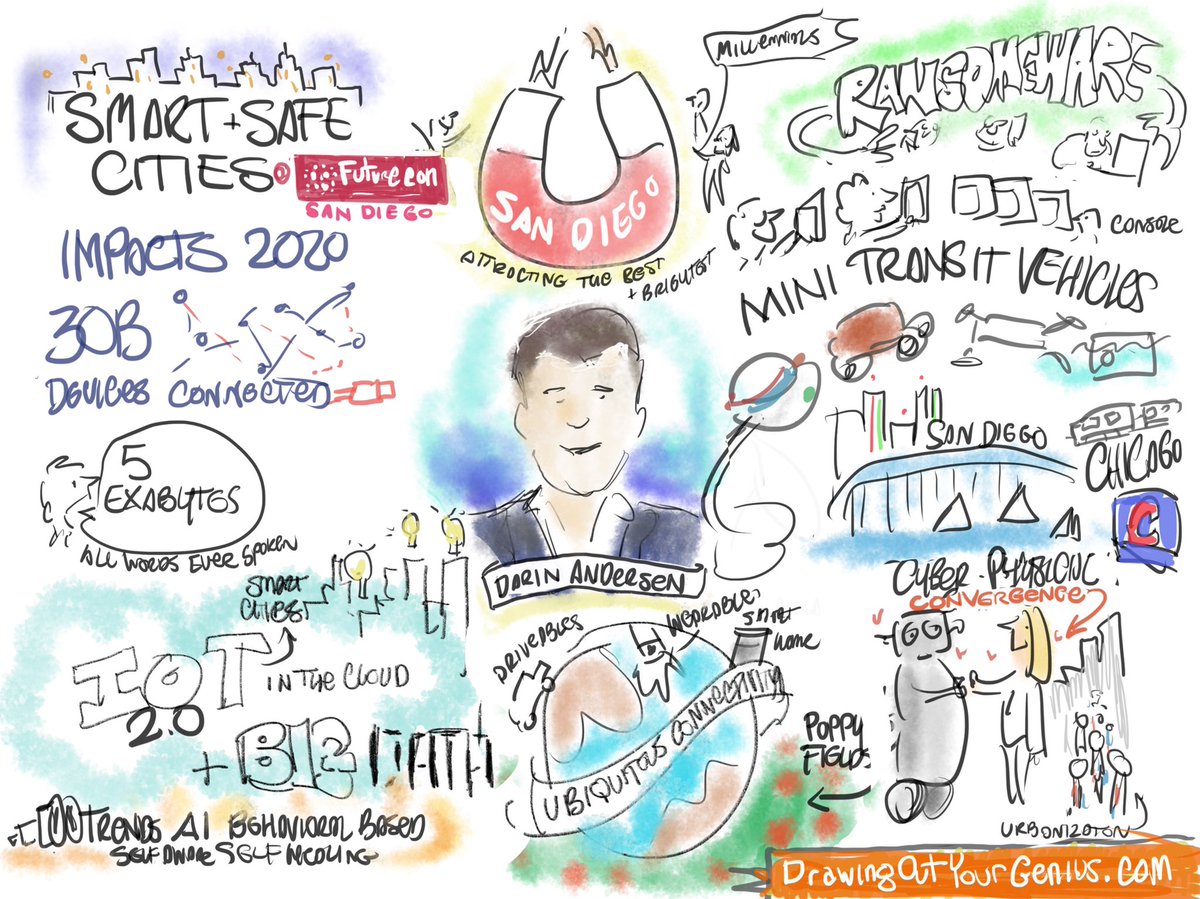 SMART + SAFE
CITIES @ FutureCon
SAN DIEGO
IMPACTS 2020
30B
DEVICES CONNECTED
5
EXABYTES
ALL WORDS EVER SPOKEN
SMART
CITIES
IOT
2.0
IN THE CLOUD
+ BIG DATA
TRENDS AI BEHAVIORAL BASED
SELF AWARE SELF HEALING
SAN DIEGO
ATTRACTING THE BEST
+ BRIGHTEST
MILLENNIALS
DARIN ANDERSEN
DRIVEABLES
WEARABLES
SMART
HOME
UBIQUITOUS CONNECTIVITY
POPPY
FIELDS
RANSOMEWARE
CONSOLE
MINI TRANSIT VEHICLES
SAN DIEGO
CHICAGO
C
CYBER-PHYSICAL
CONVERGENCE
URBANIZATON
DrawingOutYourGenius.com